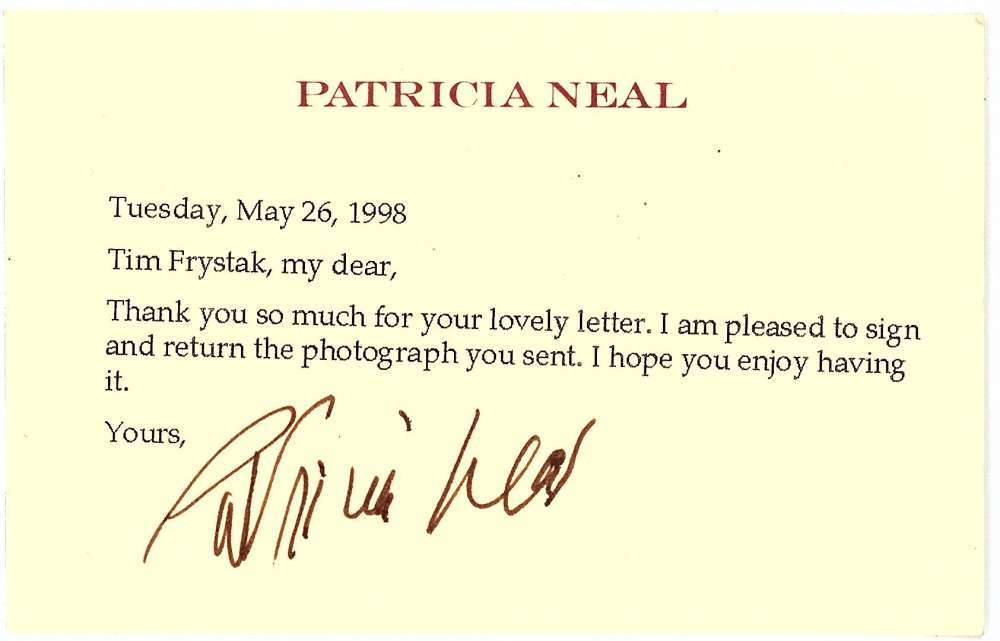 PATRICIA NEAL
Tuesday, May 26, 1998
Tim Frystak, my dear,
Thank you so much for your lovely letter. I am pleased to sign
and return the photograph you sent. I hope you enjoy having
it.
Yours,
Patricia Neal